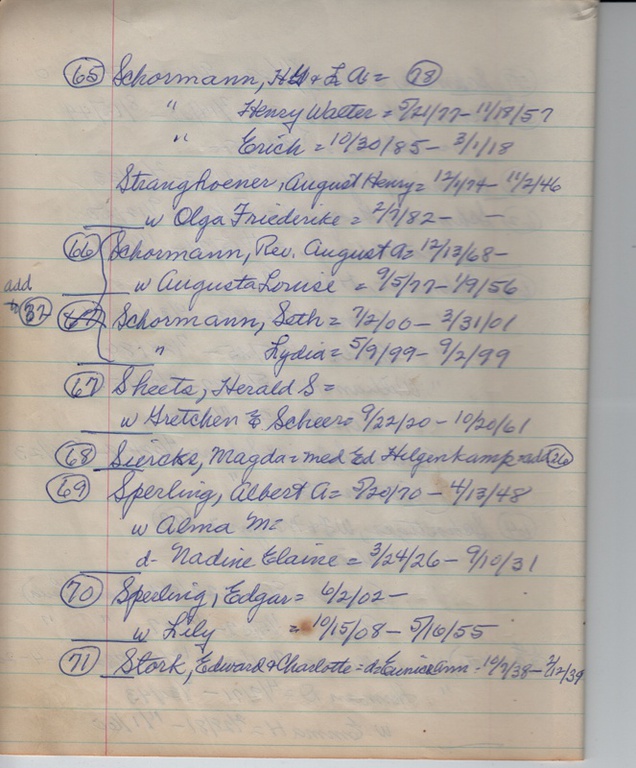 65 Schormann, H & L A = 78
" Henry Walter = 5/21/77 - 11/18/57
" Erich = 10/30/85 - 3/1/18
Stranghoener, August Henry = 12/1/74 - 11/2/46
w Olga Friederike = 2/7/82 - -
66 Schormann, Rev. August A = 12/13/68 -
w Augusta Louise = 9/5/77 - 1/9/56
add
to 32 Schormann, Seth = 7/2/00 - 3/31/01
" Lydia = 5/9/99 - 9/2/99
67 Sheets, Herald S =
w Gretchen E Scheer = 9/22/20 - 10/20/61
68 Siercks, Magda = med Ed Hilgenkamp = add 26
69 Sperling, Albert A = 5/20/70 - 4/13/48
w Alma M =
d - Nadine Elaine = 3/24/26 - 9/10/31
70 Sperling, Edgar = 6/2/02 -
w Lily = 10/15/08 - 5/16/55
71 Stork, Edward & Charlotte = d = Eunice Ann = 10/7/38 - 2/12/39